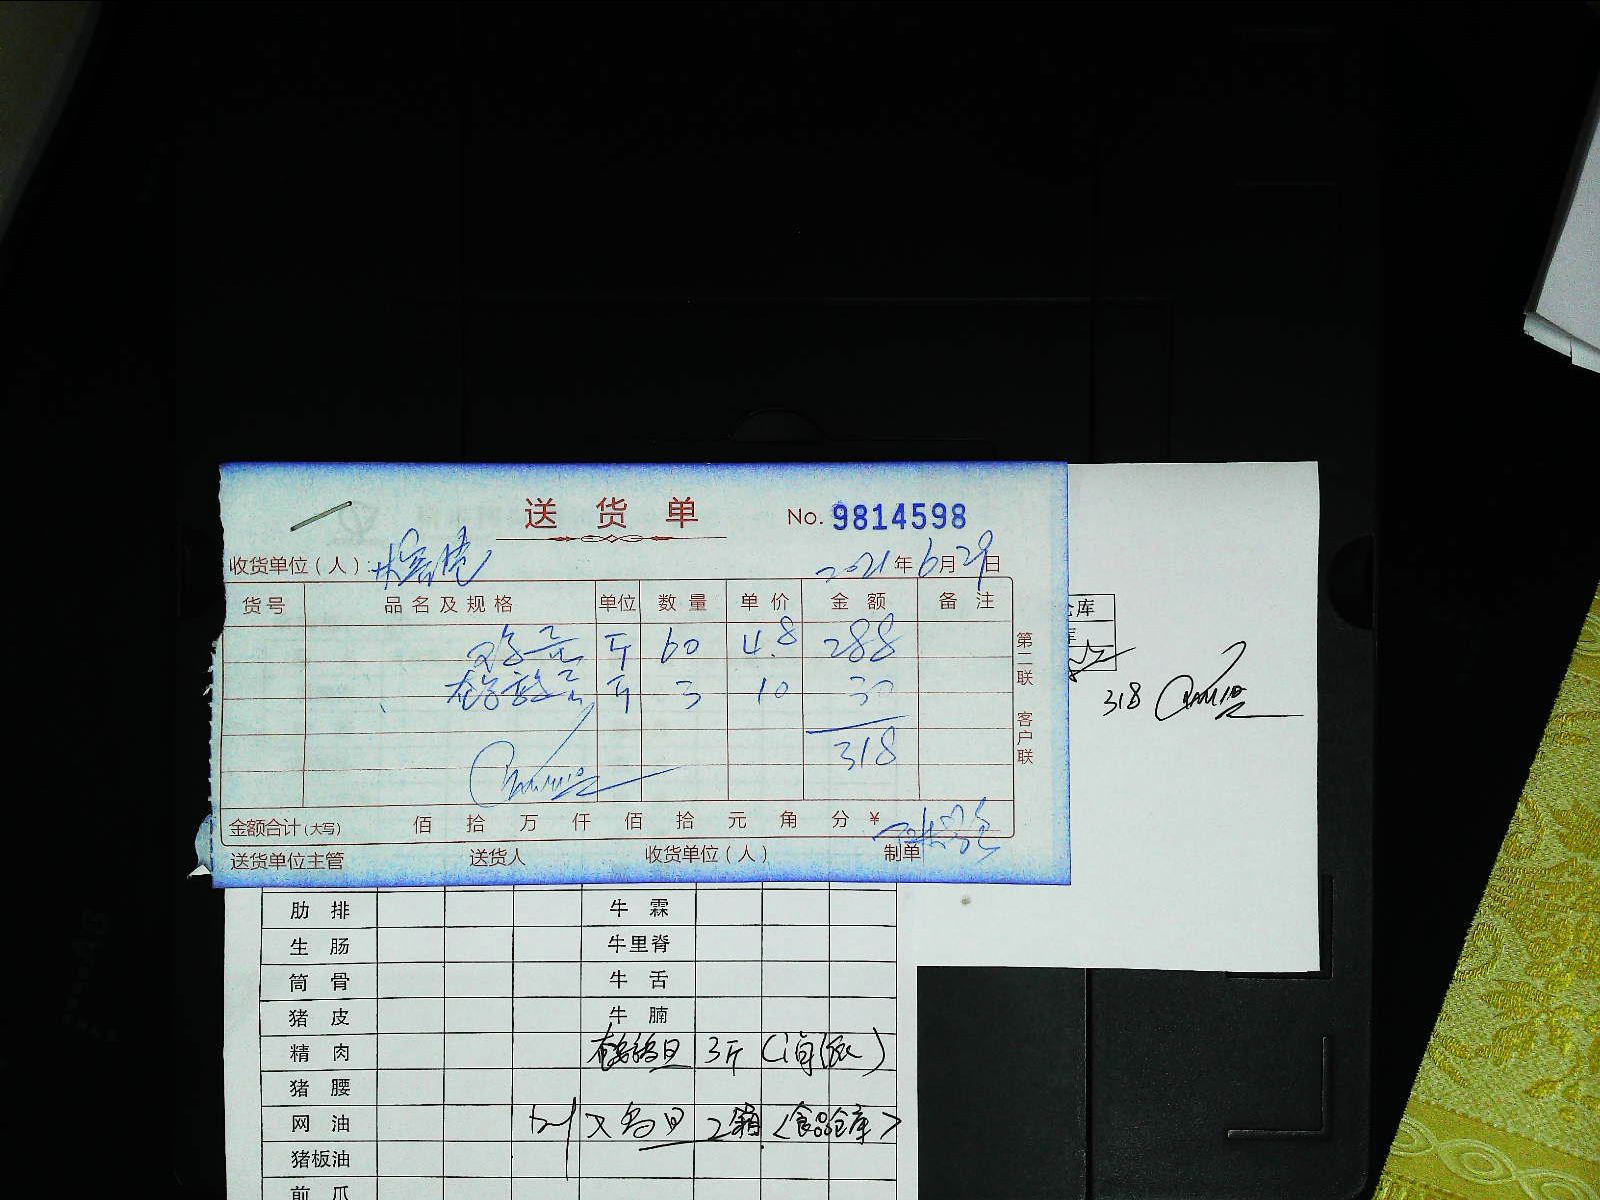 送货单 No. 9814598
收货单位（人）： 2021年6月29日
货号 品名及规格 单位 数量 单价 金额 备注
鸡蛋 斤 60 4.8 288
斤 3 10 30
318
金额合计(大写) 佰 拾 万 仟 佰 拾 元 角 分 ¥
送货单位主管 送货人 收货单位（人） 制单
第二联 客户联
仓库
库
318
肋排 牛霖
生肠 牛里脊
筒骨 牛舌
猪皮 牛腩
精肉 3斤
猪腰
网油 2箱 (食品仓库)
猪板油
前爪